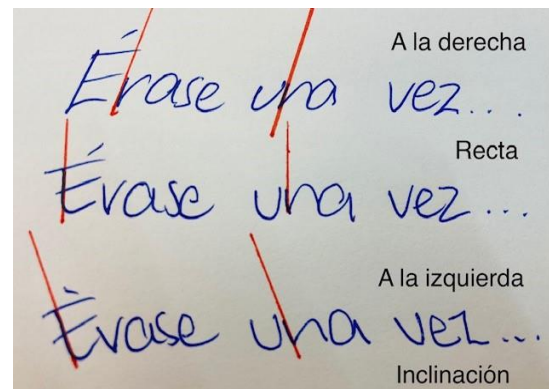 A la derecha
Érase una vez...
Recta
Érase una vez...
A la izquierda
Érase una vez...
Inclinación